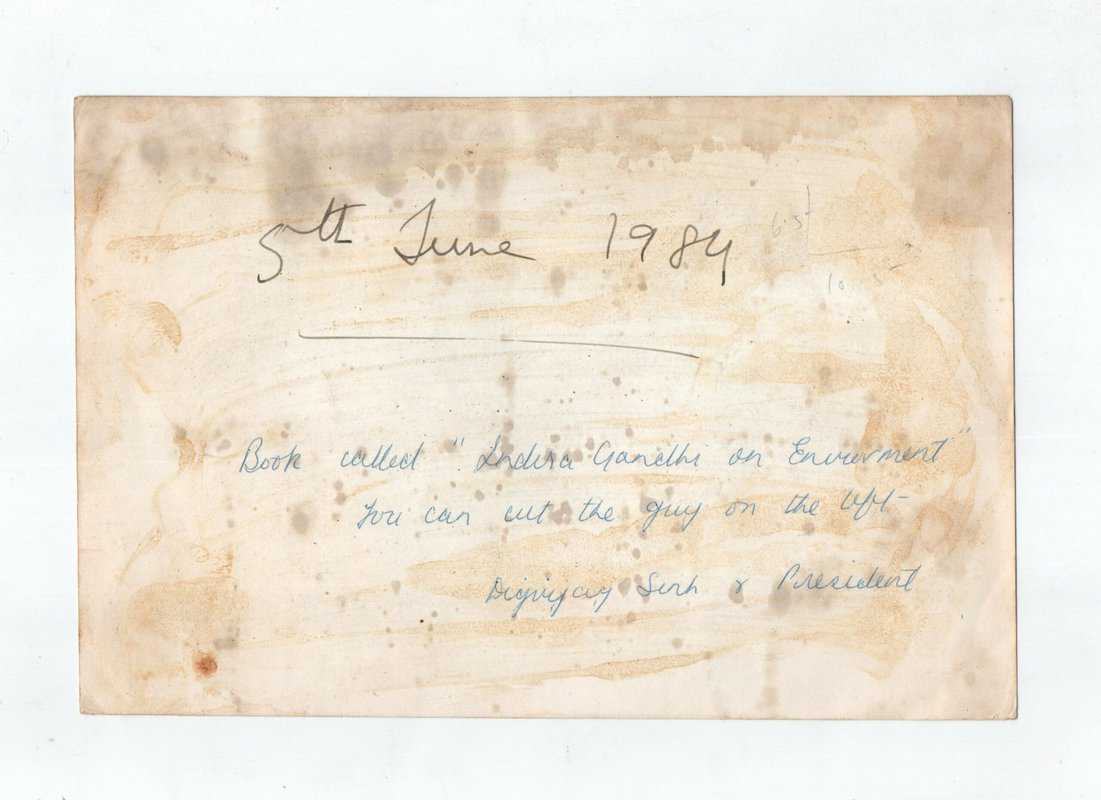 5th June 1984
Book called "Indira Gandhi on Enviorment"
You can cut the guy on the left
Digvijay Sinh & President